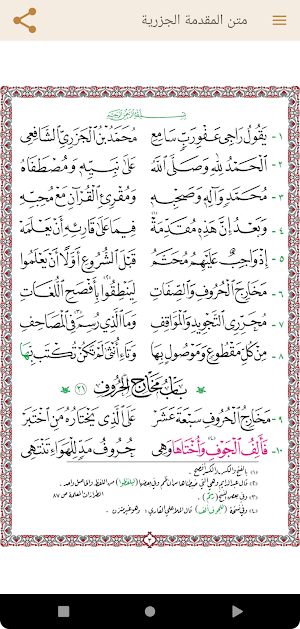 متن المقدمة الجزرية
بسم الله الرحمن الرحيم
١ - يَقُولُ رَاجِي عَفْوِ رَبٍّ سَامِعِ مُحَمَّدُ بْنُ الْجَزَرِيِّ الشَّافِعِي
٢ - الْحَمْدُ لِلَّهِ وَصَلَّى اللَّهُ عَلَى نَبِيِّهِ وَمُصْطَفَاهُ
٣ - مُحَمَّدٍ وَآلِهِ وَصَحْبِهِ وَمُقْرِئِ الْقُرْآنِ مَعْ مُحِبِّهِ
٤ - وَبَعْدُ إِنَّ هَذِهِ مُقَدِّمَةْ فِيمَا عَلَى قَارِئِهِ أَنْ يَعْلَمَهْ
٥ - إِذْ وَاجِبٌ عَلَيْهِمُ مُحَتَّمُ قَبْلَ الشُّرُوعِ أَوَّلًا أَنْ يَعْلَمُوا
٦ - مَخَارِجَ الْحُرُوفِ وَالصِّفَاتِ لِيَنْطِقُوا بِأَفْصَحِ اللُّغَاتِ
٧ - مُحَرِّرِي التَّجْوِيدِ وَالْمَوَاقِفِ وَمَا الَّذِي رُسِمَ فِي الْمَصَاحِفِ
٨ - مِنْ كُلِّ مَقْطُوعٍ وَمَوْصُولٍ بِهَا وَتَاءِ أُنْثَى لَمْ تَكُنْ تُكْتَبْ بِهَا
بَابُ مَخَارِجِ الْحُرُوفِ
٩ - مَخَارِجُ الْحُرُوفِ سَبْعَةَ عَشَرْ عَلَى الَّذِي يَخْتَارُهُ مَنِ اخْتَبَرْ
١٠ - فَأَلِفُ الْجَوْفِ وَأُخْتَاهَا وَهِي حُرُوفُ مَدٍّ لِلْهَوَاءِ تَنْتَهِي
(١) بالفتح والكسر، والكسر أفصح.